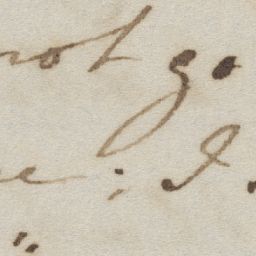 not go
e; I
"